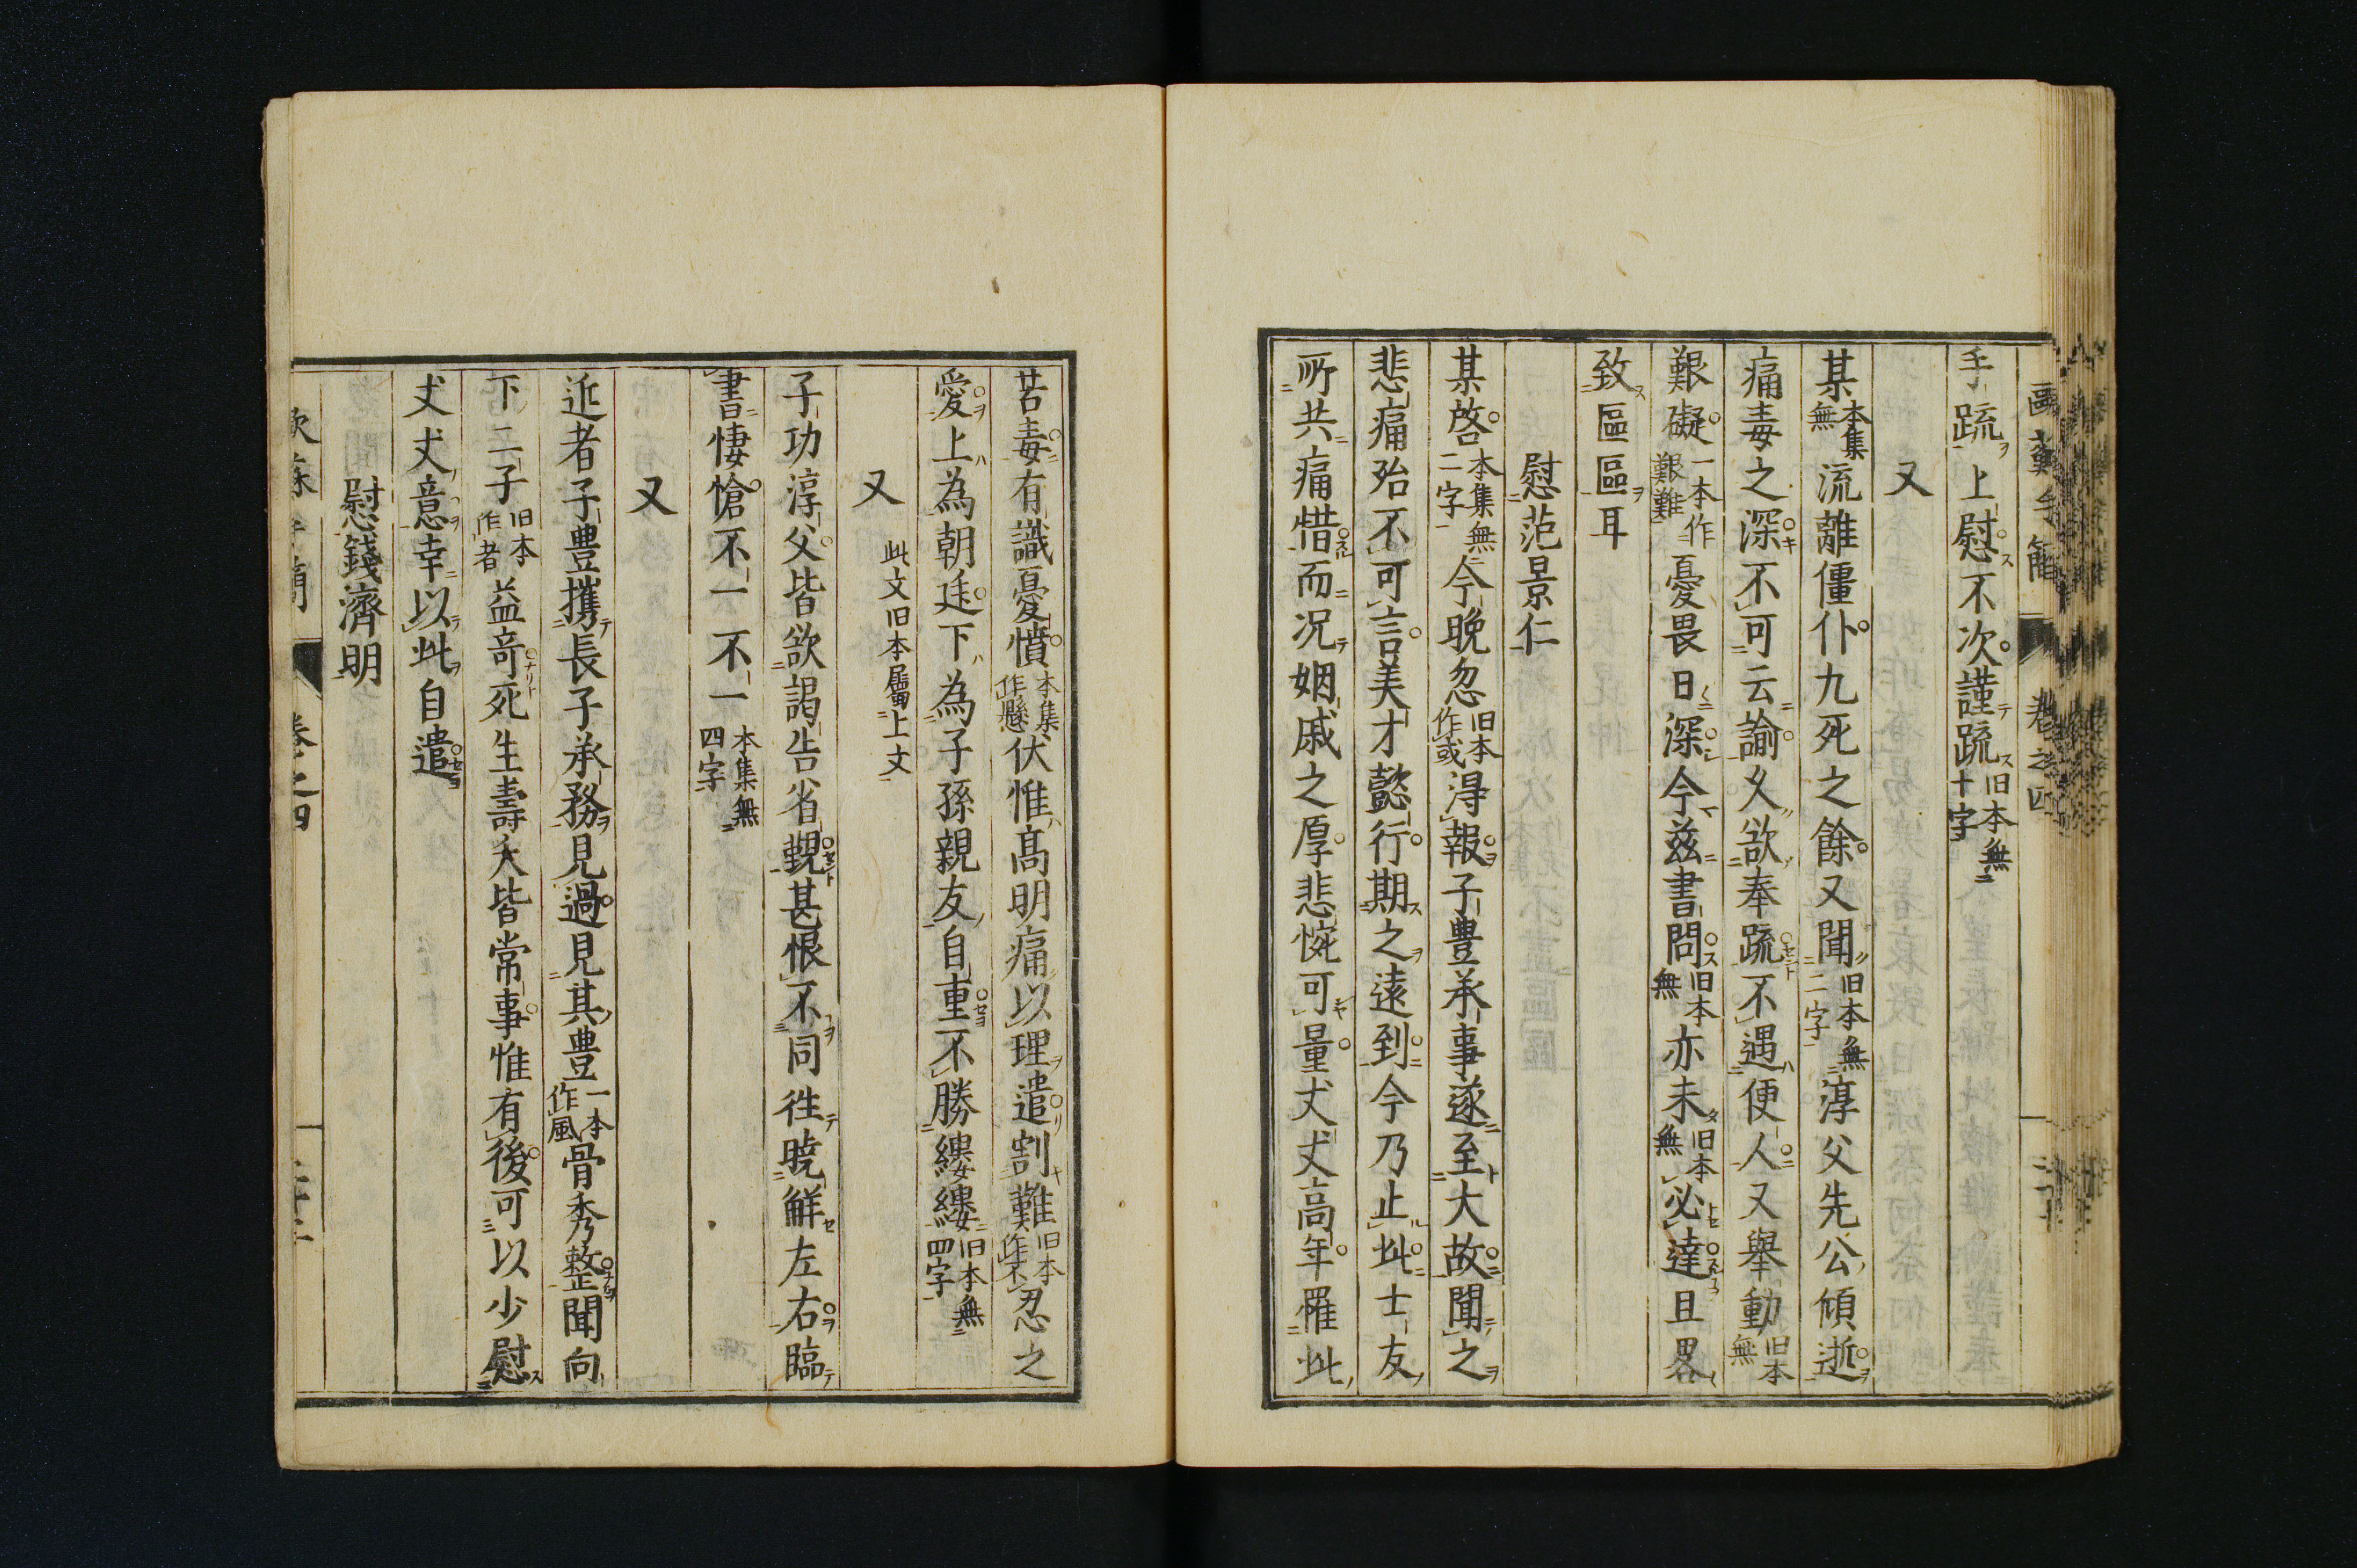 手疏上慰不次謹疏旧本無十字
又
某本集無流離僵仆九死之餘又聞旧本無二字淳父先公傾逝
痛毒之深不可云諭久欲奉疏不遇便人又舉動旧本無
艱礙一本作艱難憂畏日深今茲書問旧本無亦未旧本無必達且畧
致區區耳
慰范景仁
某啓本集無二字今晚忽旧本作或淂報子豊承事遂至大故聞之
悲痛殆不可言美才懿行期之遠到今乃止此士友
所共痛惜而况姻戚之厚悲惋可量丈丈高年罹此
苦毒有識憂憤本集作懸伏惟高明痛以理遣割難旧本作不忍之
愛上為朝廷下為子孫親友自重不勝縷縷旧本無四字
又 此文旧本屬上文
子功淳父皆欲謁告省覲甚恨不同往暁解左右臨
書悽愴不一不一本集無四字
又
近者子豊攜長子承務見過見其豊一本作風骨秀整聞向
下二子旧本作者益竒死生壽夭皆常事惟有後可以少慰
丈丈意幸以此自遣
慰錢濟明
歐蘇手簡 卷之四